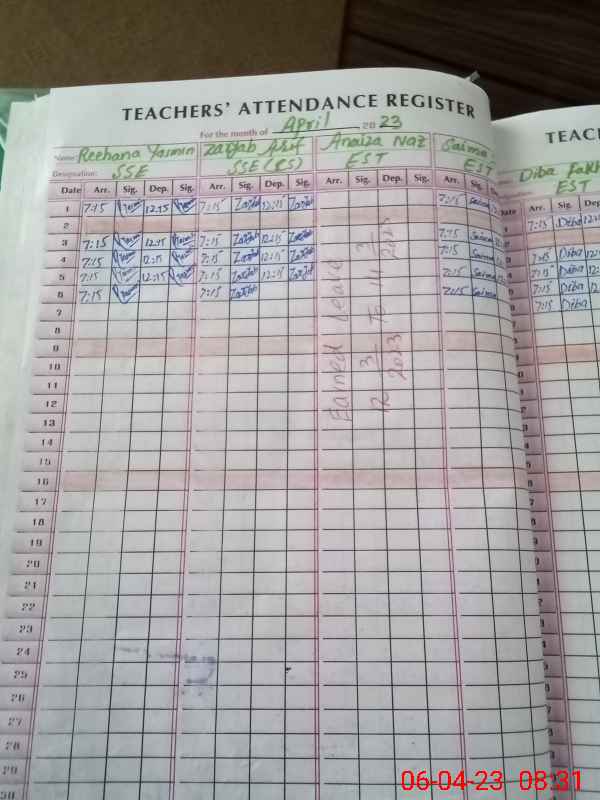 TEACHERS' ATTENDANCE REGISTER
For the month of April 2023
Name Reehana Yasmin Zartab Arif Anaiza Naz Saima
Designation: SSE SSE (CS) EST EST
Date Arr. Sig. Dep. Sig. Arr. Sig. Dep. Sig. Arr. Sig. Dep. Sig. Arr. Sig.
1 7:15 12:15 7:15 Zartab 12:15 Zartab 7:15 Saima
2
3 7:15 12:15 7:15 Zartab 12:15 Zartab 7:15 Saima
4 7:15 12:15 7:15 Zartab 12:15 Zartab 7:15 Saima
5 7:15 12:15 7:15 Zartab 12:15 Zartab 7:15 Saima
6 7:15 7:15 Zartab 7:15 Saima
7
8
9
10
11
12
13
14
15
16
17
18
19
20
21
22
23
24
25
26
27
28
29
30
Earned Leave
12 3/2023 To 14 3/2023
TEAC
Diba
EST
Date Arr. Sig.
7:15 Diba 12:
7:15 Diba 12:
7:15 Diba 12:
7:15 Diba 12:
7:15 Diba
06-04-23 08:31